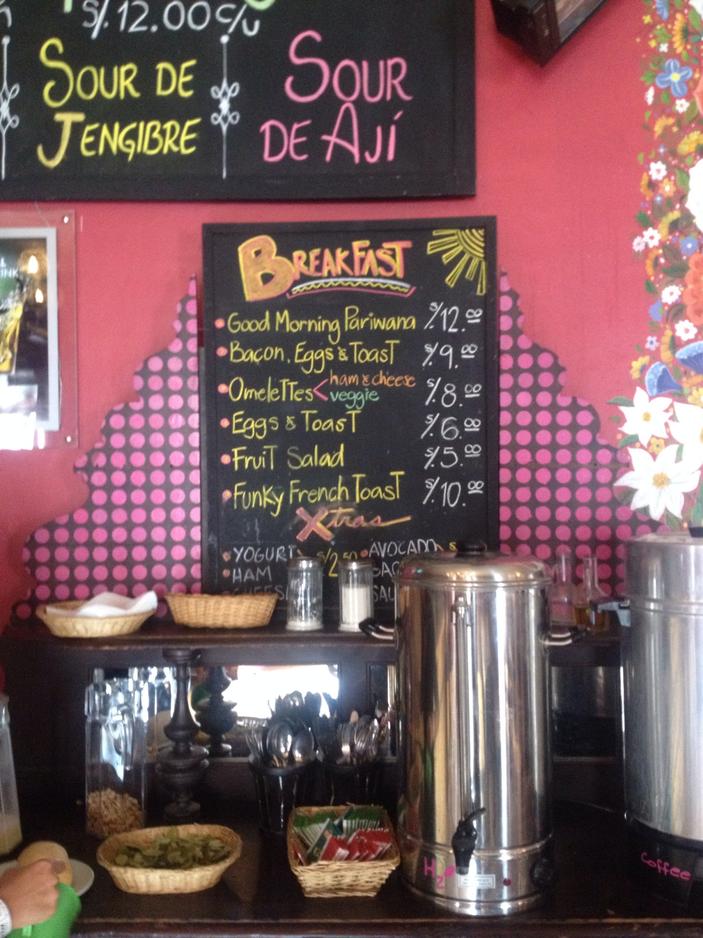 S/. 12.00 c/u
SOUR DE
JENGIBRE
SOUR
DE AJÍ
BREAKFAST
GOOD MORNING PARIWANA S/. 12.00
BACON, EGGS & TOAST S/. 9.00
OMELETTES < ham & cheese S/. 8.00
veggie
EGGS & TOAST S/. 6.00
FRUIT SALAD S/. 5.00
FUNKY FRENCH TOAST S/. 10.00
Xtras
YOGURT S/2.50 AVOCADO
HAM
H2O
Coffee